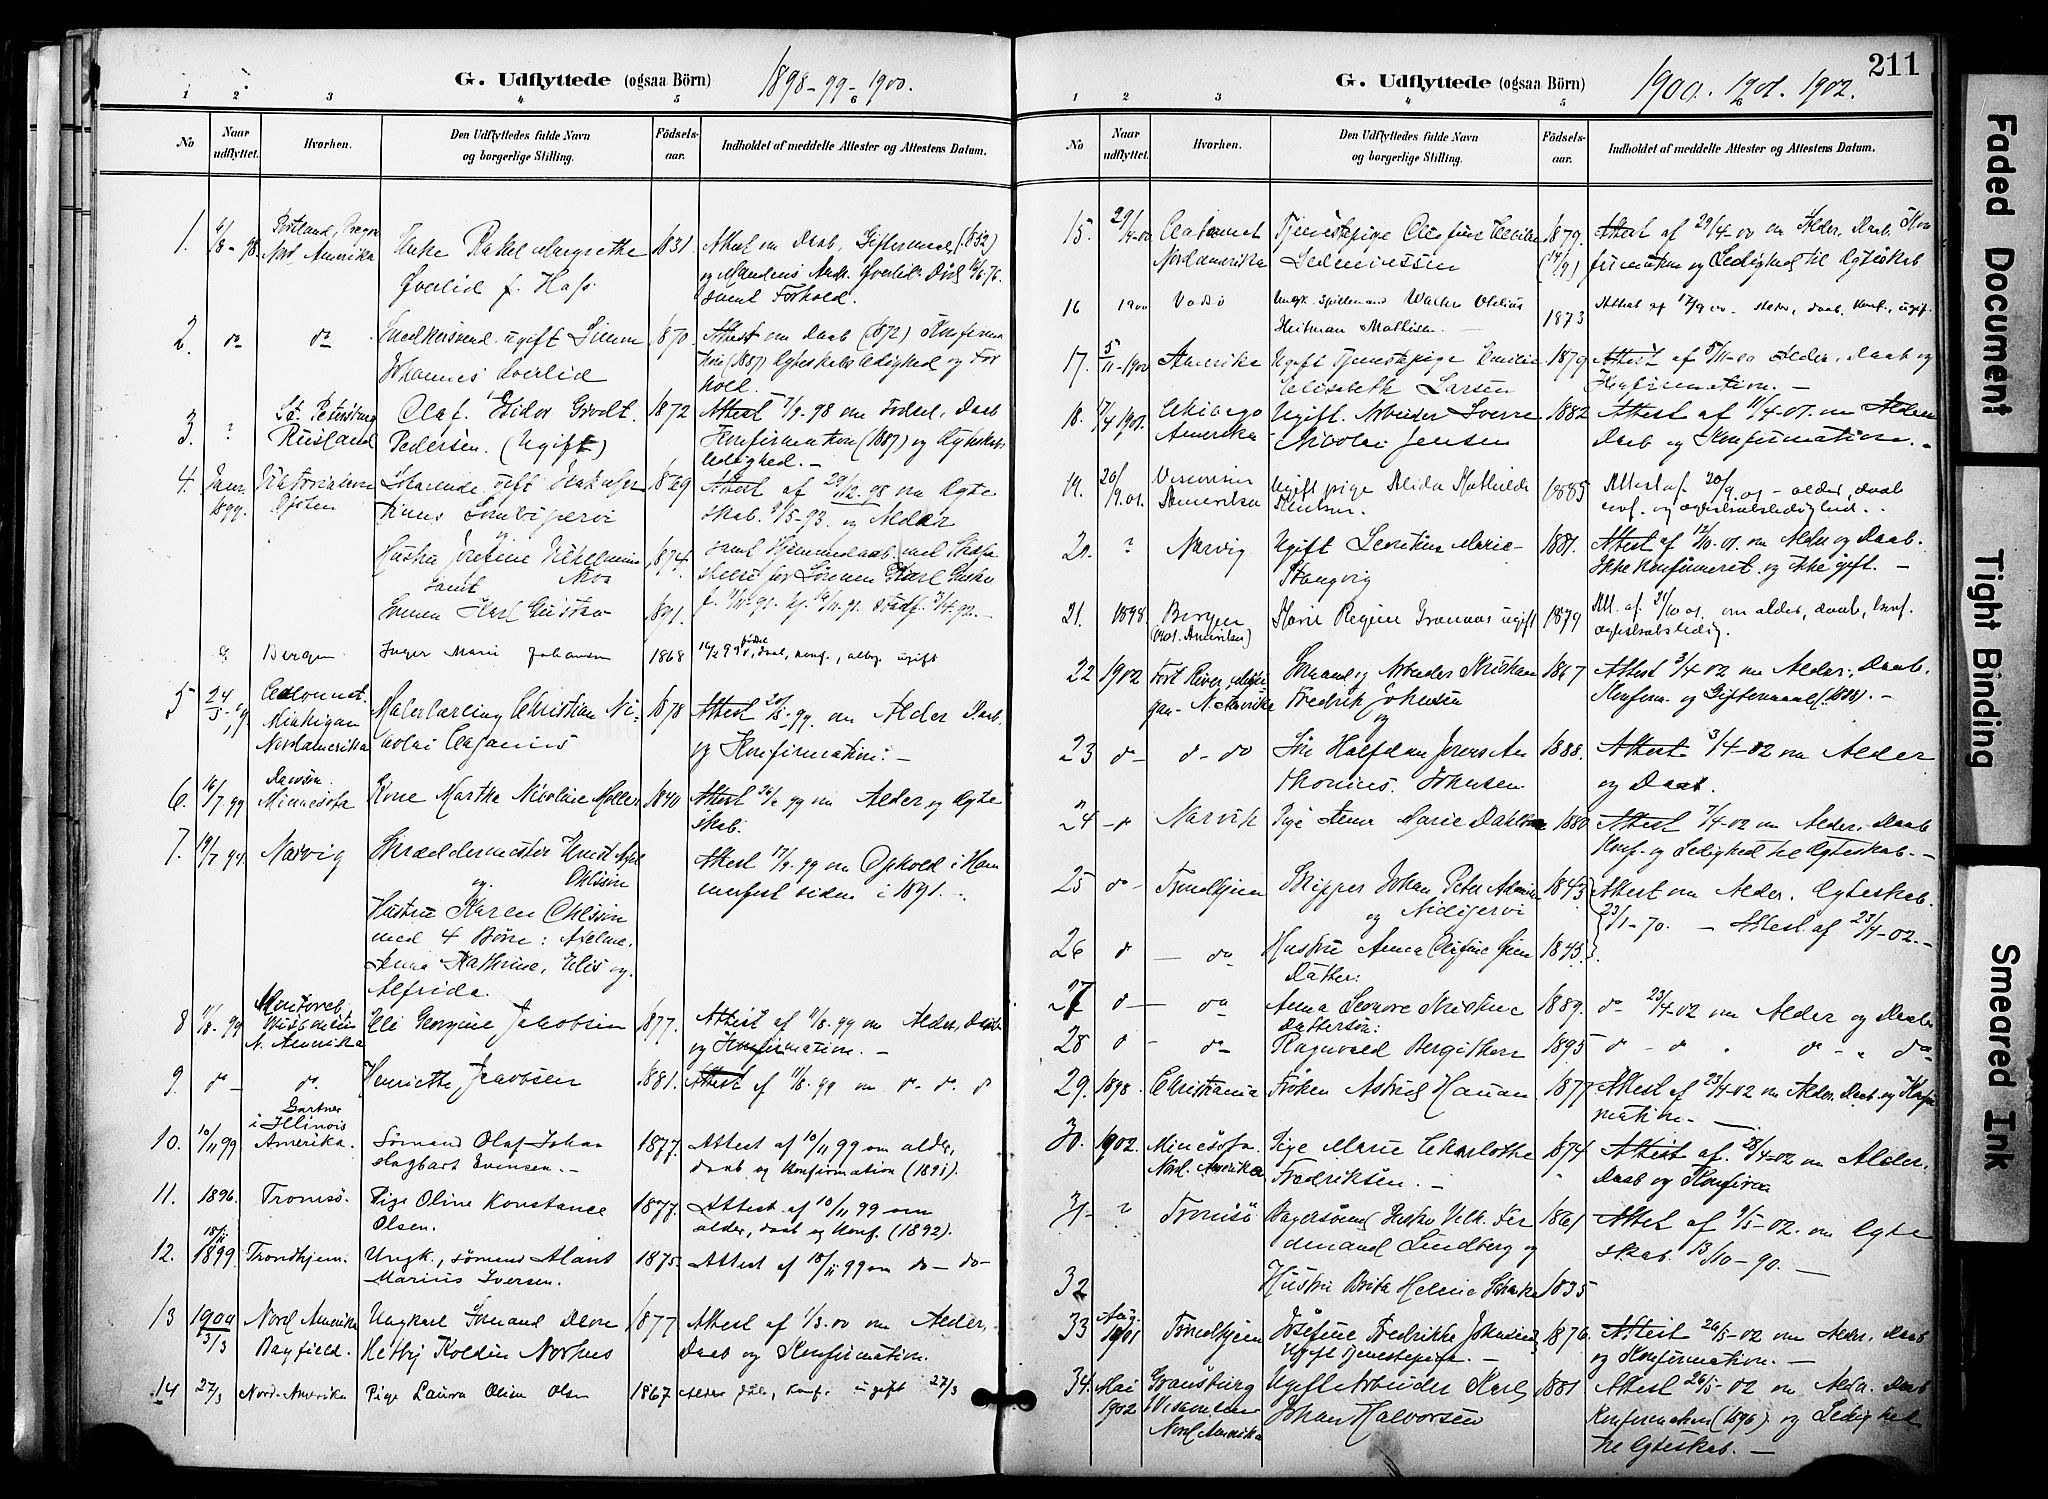 G. Udflyttede (ogsaa Börn) 1898-99-1900.
1 2 3 4 5 6
No Naar udflyttet. Hvorhen. Den Udflyttedes fulde Navn og borgerlige Stilling. Födsels-aar. Indholdet af meddelte Attester og Attestens Datum.
1. 6/8-98. Portland, Oregon Enke Rakel Margrethe 1831. Attest om Daab, Giftermaal (1852)
Nord Amerika Øverlid f.
samt Forhold.
2. do do Snedkersvend ugift Simon 1870. Attest om Daab (1872) Konfirma
Johannes Øverlid tion (1887) Egteskabsledighed og For
hold.
3. ? St. Petersburg Olaf Isidor Grodt 1872 Attest 7/9-98 om Fødsel, Daab
Rusland Pedersen. (Ugift) Konfirmation (1887) og Egteskabs
ledighed. -
4. Janr. 1899. 1869 Attest af 29/12-98 om Egte
skab 8/5-93. og Alder
Hustru Josefine Vilhelmine 1874.
samt
Sønnen Karl Gustav 1891.
Bergen Inger Marie Johansen 1868 ugift
5 24/5-99 Calumet Malerlærling Christian Ni- 1878 Attest 20/5-99. om Alder Daab
Michigan kolai
Nordamerika og Konfirmation. -
6. 16/7 99 Dawson Kone Martha Nikoline Møller 1840 Attest om Alder og Egte
Minnesota skab.
7. Narvig Skræddermester Ernst Axel Attest 17/7-99 om Ophold i Ham
og Ohlsson merfest siden i 1891. -
Hustru Karen Ohlsson
med 4 Børn: Axeline,
Anna Kathrine, Elis og
Alfrida.
8 11/8-99 Eli Georgine Jakobsen 1877. Attest af 11/8-99 om Alder, Daab
N. Amerika og Konfirmation. -
9. do - do. Henriette Jacobsen 1881. Attest af 11/8-99 om do. do. do
10. 10/11 99 Gartner i Illinois Sømand Olaf Johan 1877. Attest af 10/11 99 om alder,
Amerika. Hagbart Evensen. - daab og konfirmation (1891).
11. 1896. Tromsø. Pige Oline Konstance 1877. Attest af 10/11 99 om
Olsen. alder, daab og konf. (1892).
12. 18/11 1899 Trondhjem. Ungk., sømand Alant 1875. Attest af 18/11 99 om do- do-
Marius Iversen.
13 1900 13/3 Nord Amerika Ungkarl Sømand 1877 Attest af 1/3.00 om Alder,
Bayfield. Daab og Konfirmation.
14 27/3 Nord-Amerika Pige Laura Oline Olsen 1867 Alder, daab, konf. ugift 27/3
211
G. Udflyttede (ogsaa Börn) 1900. 1901. 1902.
1 2 3 4 5 6
No Naar udflyttet. Hvorhen. Den Udflyttedes fulde Navn og borgerlige Stilling. Födsels-aar. Indholdet af meddelte Attester og Attestens Datum.
15. 29/4-00 Calumet Tjenestepige Olefine Cecilie 1879. Attest af 29/4-00 om Alder, Daab, Kon
Nordamerika (14/9) firmation og Ledighed til Egteskab
16 1900 Vadsø Ungk. 1873 Attest af 17/9 00. alder, daab, konf., ugift.
Heitman Mathisen. -
17. 5/11-1900 Amerika Ugift Tjenestepige Emilie 1879 Attest af 5/11-00 Alder, Daab og
Elisabeth Larsen Konfirmation. -
18. 17/4 1901. Chicago Ugift. Arbeider Sverre 1882 Attest af 11/4-01. om Alder
Amerika Nikolai Jensen Daab og Konfirmation. -
19. 20/9.01. Visconsin Ugift pige Alida Mathilde 1885 Attest af 20/9.01 - alder, daab
Amerika Knutsen. konf. og egteskabsledighed.
20. ? Narvig Ugift Marie 1881. Attest af 12/10-01. om Alder og Daab.
Stangvig Ikke konfirmeret og ikke gift. -
21. 1898. Bergen Marie Regine ugift 1879 Att. af 21/10 01. om alder, daab, konf.
(Nord. Amerika) egteskabsledig.
22 1902 Sømand og Arbeider Kristian 1867 Attest 3/4-02 om Alder, Daab.
N. Amerika Fredrik Johnsen Konfirm. og Giftermaal (1888). -
og
23 do- do- do Søn Halfdan Jonas An 1888. Attest 3/4-02 om Alder
thonius Johnsen og Daab.
24 -do Narvik Pige Anna Marie 1880 Attest 7/4-02 om Alder, Daab
Konf. og Ledighed til Egteskab. -
25 do- Trondhjem Skipper Johan Peter 1843 Attest om Alder. Egteskab.
og Nidijervi 23/1-70. - Attest af 23/4-02. -
26 do - do Hustru Anna Olefine 1845.
Datter:
27 do - do Anna Leonore Kristine 1889. do 23/4-02 om Alder og Daab
Dattersøn:
28 do - do- Ragnvald Bergithon 1895 do - do " do - " do
29. 1898. Christiania Frøken Astrid Hauan 1877 Attest af 23/4-02 om Alder. Daab og Konfir
mation. -
30. 1902. Minesota. Pige Marie Charlotte 1874 Attest af. 28/4-02 om Alder.
Nord. Amerika Fredriksen. - Daab og Konfirm
31 ? Tromsø Bagersvend Isak Vilh. Fer 1861 Attest af 9/5-02. om Egte
dinand Lindberg og skab. 13/10-90. -
32 Hustru Brita Helene 1835
33 Aug. 1901 Trondhjem Josefine Fredrikke Johnsen 1876. Attest 26/5-02 om Alder, Daab
Ugift Tjenestepige. - og Konfirmation. -
34. Mai 1902 Gransburg Ugift Arbeider Karl 1881 Attest 26/5-02 om Alder. Daab
Visconsin Johan Halvorsen Konfirmation (1896) og Ledighed
Nord Amerika til Egteskab. -
Faded Document
Tight Binding
Smeared Ink